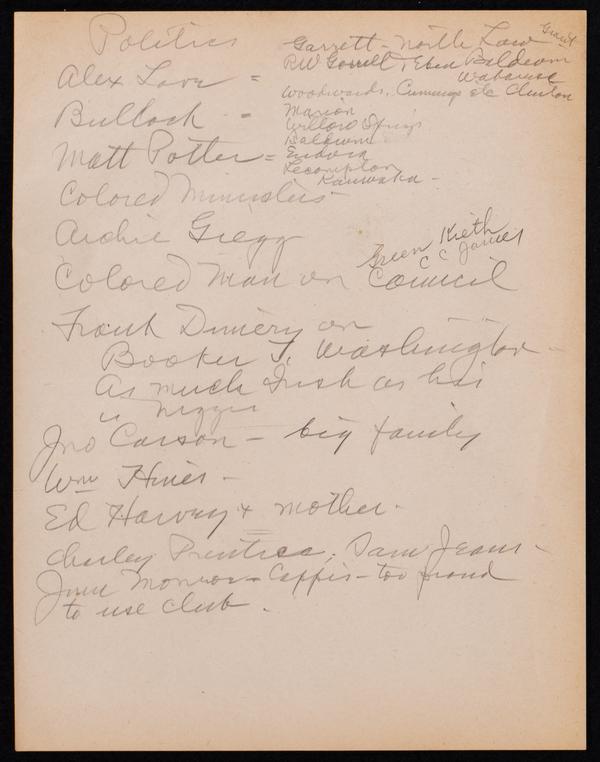 Politics
Garrett - North Law Grant
Alex Love =
RW Gorrell & Eben Baldwin
Wabaunse
Woodwards, Cummings etc Clinton
Bullock -
Marion
Willow Springs
Baldwin
Matt Potter =
Eudora
Lecompton
Kanwaka -
Colored Ministers
Archie Gregg
Green Kieth
C C James
Colored Man on Council
Frank Dimery on
Booker T. Washington -
As much Irish as his
is nigger
Jno Carson - big family
Wm Hines -
Ed Harvey & mother.
Charley Prentice, Sam Jeans -
June Monroe - Cappis - too proud
to use club.